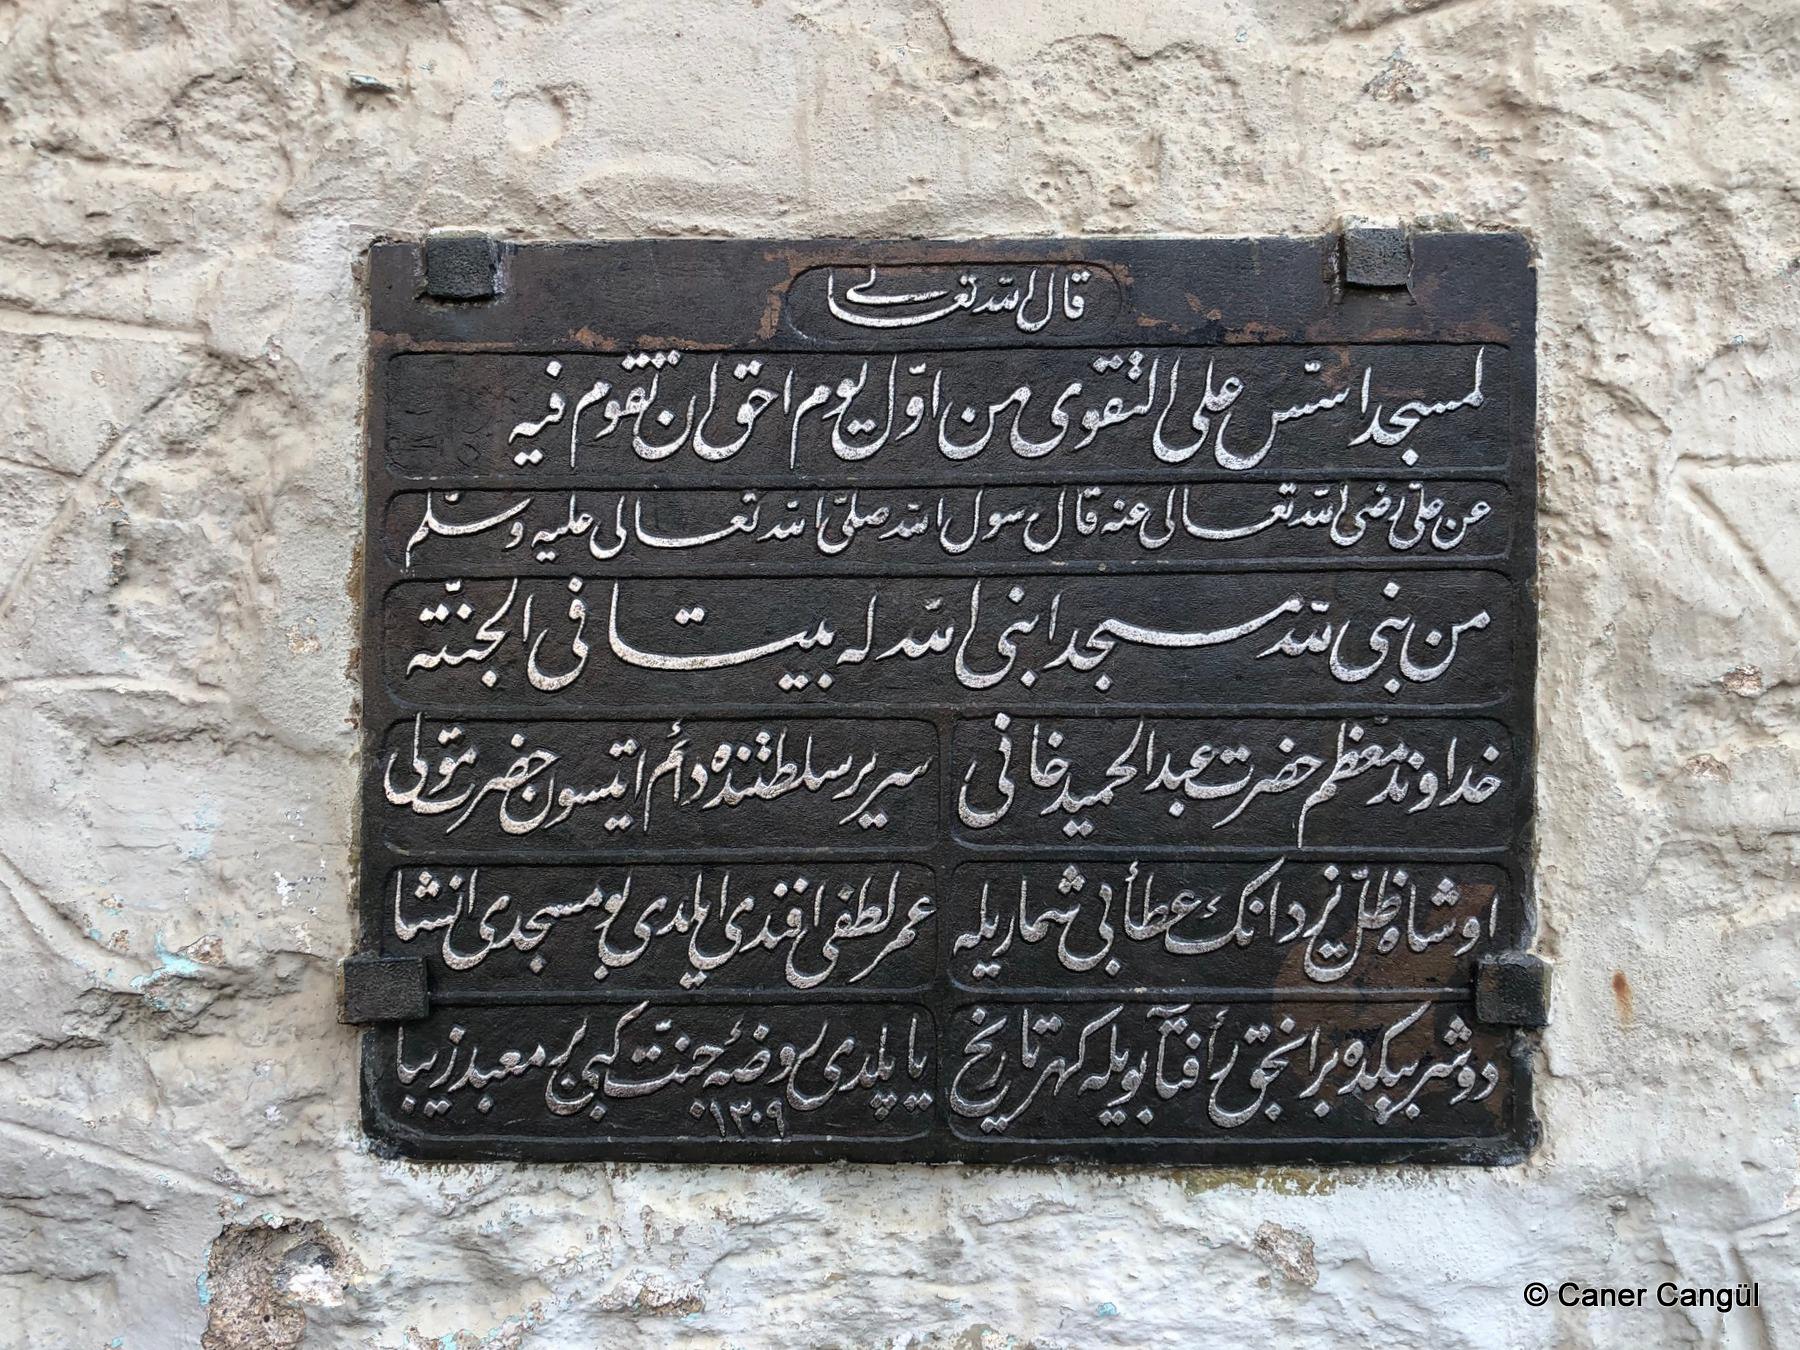 قال الله تعالى
لمسجد اسّس على التقوى من اوّل يوم احق ان تقوم فيه
عن علىّ رضى الله تعالى عنه قال رسول الله صلىّ الله تعالى عليه وسلّم
من بنى لله مسجدا بنى الله له بيتا فى الجنّة
خداوند معظم حضرت عبد الحميد خانى سرير سلطنتنده دائم ايتسون حضرت مولى
او شاه ظلّ يزدانك عطأ بى شماريله عمر لطفى افندى ايلدى بو مسجدى انشا
دوشر بيكده بر انجق رأفتا بويله كهر تاريخ ياپلدى روضهٔ جنّت كبى بر معبد زيبا
١٣٠٩
© Caner Cangül